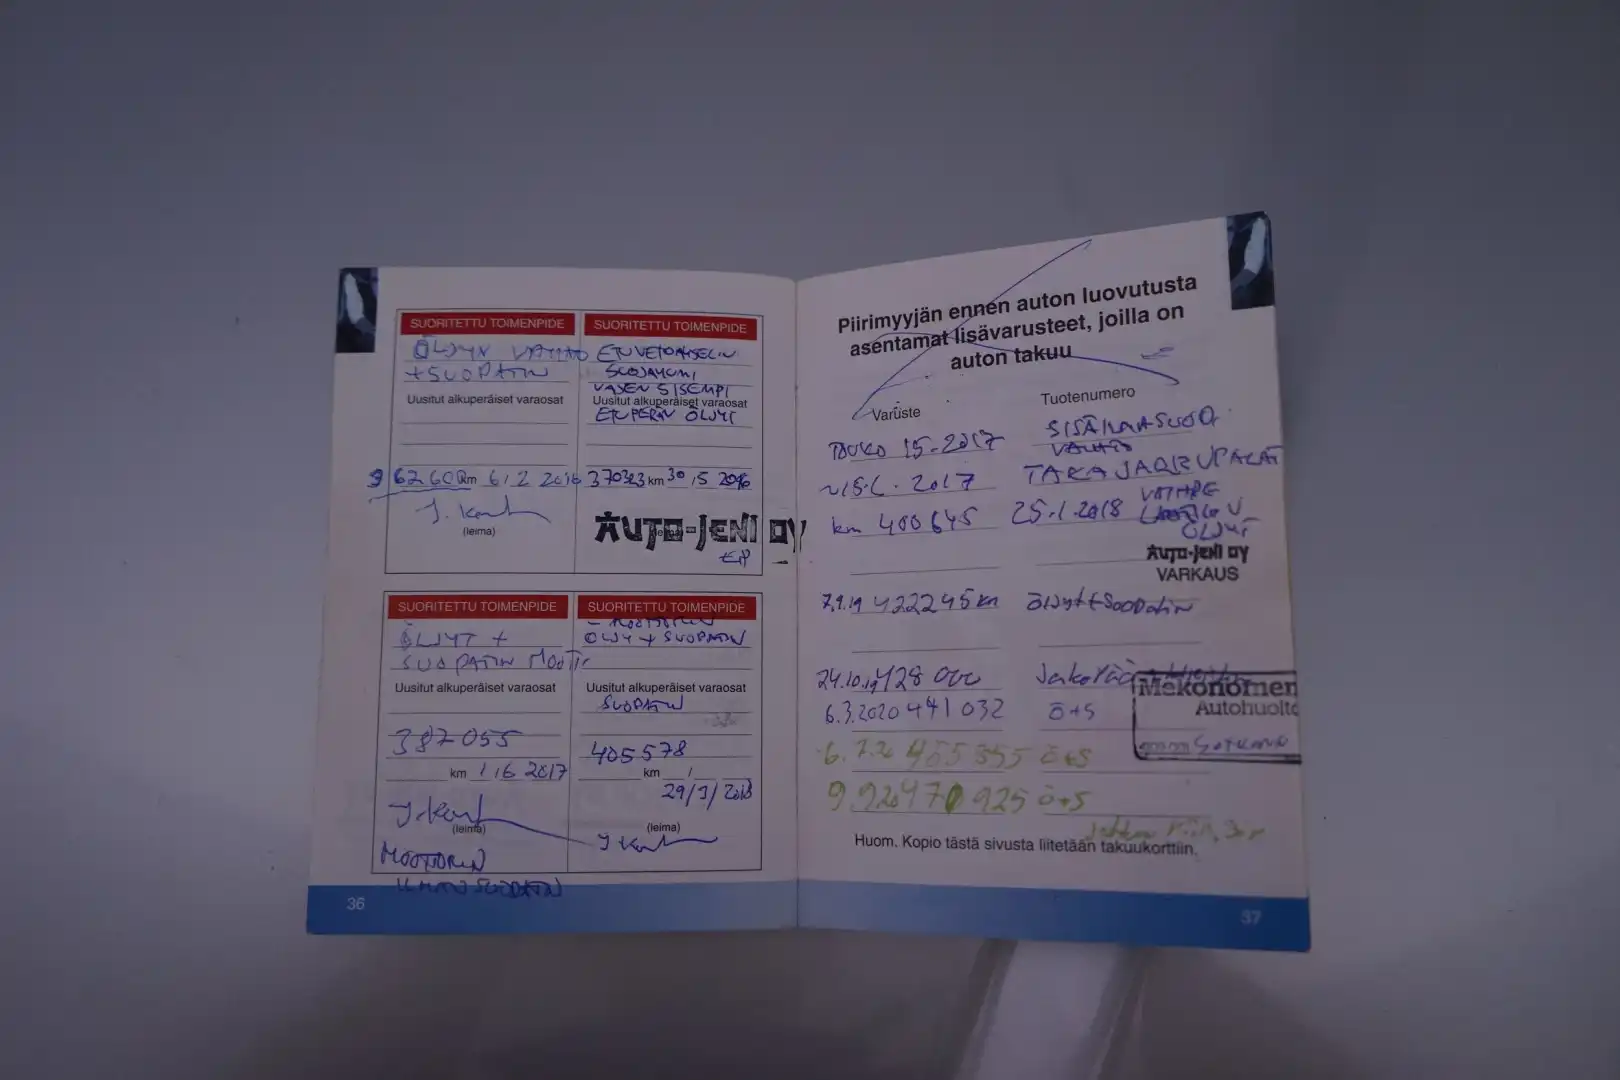 SUORITETTU TOIMENPIDE
ÖLJYN VAIHTO
+ SUODATIN
Uusitut alkuperäiset varaosat
362600 km 6/2 2016
(leima)
SUORITETTU TOIMENPIDE
ETUVETOAKSELIN
SUOJAKUMI
VASEN SISEMPI
Uusitut alkuperäiset varaosat
ETUPERÄN ÖLJYT
370323 km 30/5 2016
AUTO-JENI OY
SUORITETTU TOIMENPIDE
ÖLJYT +
SUODATIN MOOTT
Uusitut alkuperäiset varaosat
387055
km 1/6 2017
(leima)
MOOTTORIN
ILMANSUODATIN
SUORITETTU TOIMENPIDE
- MOOTTORIN
ÖLJY + SUODATIN
Uusitut alkuperäiset varaosat
SUODATIN
405578
km / /
29/3/2018
(leima)
36
Piirimyyjän ennen auton luovutusta
asentamat lisävarusteet, joilla on
auton takuu
Varuste Tuotenumero
TOUKO 15-2017 SISÄILMASUOD.
VAIHTO
2017 TAKAJARRUPALAT
km 400645 25.1.2018
ÖLJYT
AUTO-JENI OY
VARKAUS
7.9.19 422245 km Öljyt+Suodatin
24.10.19 428 000
Mekonomen
Autohuolto
6.3.2020 441 032 ö+S
455 355 ö+S
9 9 20 470 925 ö+S
Huom. Kopio tästä sivusta liitetään takuukorttiin.
37